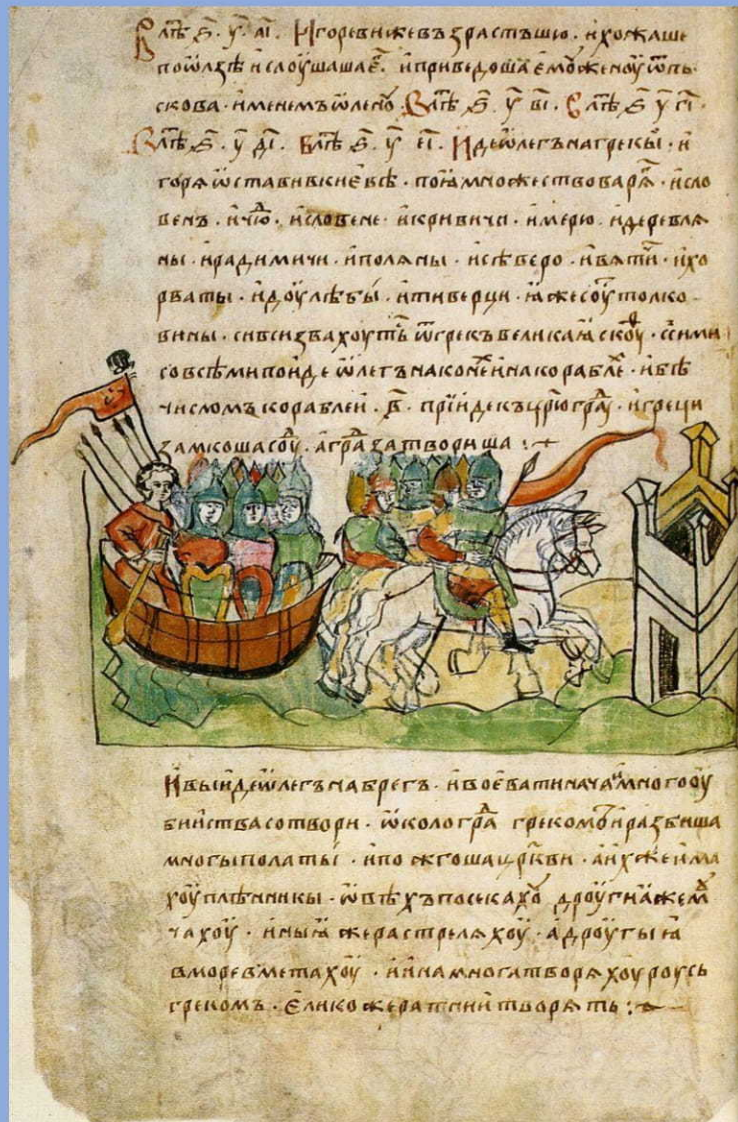 В лѣⷮ ҂ѕ҃. у҃. аі҃. Игореви же възрастъшю. и хожаше
по ѡлзѣ и слоушаша е҃. и приведоша ємоу женоу ѿ пь
скова. именемъ ѡленоу. В лѣⷮ ҂ѕ҃. у҃ ві҃. В лѣⷮ ҂ѕ҃ у҃ гі҃.
В лѣⷮ ҂ѕ҃. у҃ ді҃. В лѣⷮ ҂ѕ҃. у҃ еі҃. Иде ѡлегъ на грекы. и
горя ѡставив кнєвѣ. поꙗ множество варѧ. и сло
венъ. и чюⷣ. и словене. и кривичи. и мерю. и деревлѧ
ны. и радимичи. и поляны. и сѣверо. и вятичи. и хо
рваты. и доулѣбы. и тиверци. ꙗже соуⷮ толко
вины. си вси звахоутьⷭ ѿ грекъ великаꙗ скоуⷴ. с сими
со всѣми поиде ѡлегъ на конеⷯ и на кораблеⷯ. и бѣ
числомъ кораблеи. в҃. прїиде къ црⷭю граⷣ. и греци
замкоша соуⷣ. а граⷣ затвориша :
И выиде ѡлегъ на брегъ. и воевати нача. и много оу
бииства сотвори. ѡколо граⷣ грекомъ. и разбиша
многы полаты. и пожгоша црⷪкви. а ихже има
хоу плѣнникы. ѡвѣхъ посекахоу дроугиꙗ же моу
чахоу. иныꙗ же растреляхоу. а дроугыꙗ
в море вметахоу. и ина многа творяхоу роусь
грекомъ. Елико же ратнии творять :